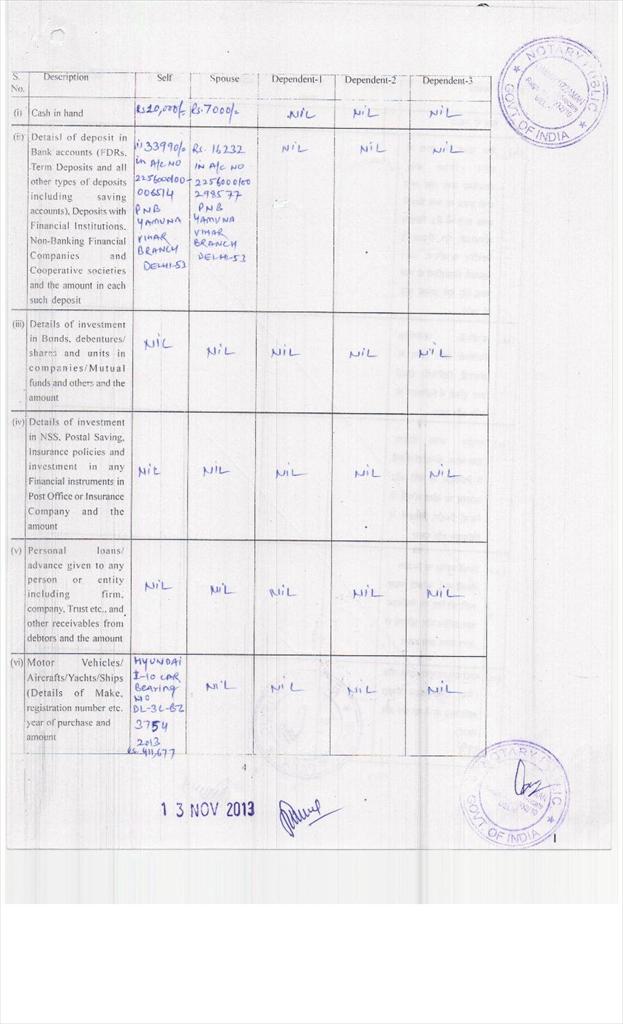 S. No. Description Self Spouse Dependent-1 Dependent-2 Dependent-3
(i) Cash in hand Rs 20,000/- Rs. 7000/- NIL NIL NIL
(ii) Detaisl of deposit in
Bank accounts (FDRs,
Term Deposits and all
other types of deposits
including saving
accounts), Deposits with
Financial Institutions,
Non-Banking Financial
Companies and
Cooperative societies
and the amount in each
such deposit
33990/-
in A/C NO
2256000100-
006514
PNB
YAMUNA
VIHAR
BRANCH
DELHI-53
Rs. 16232
IN A/C NO
2256000100
298577
PNB
YAMUNA
VIHAR
BRANCH
DELHI-53
NIL NIL NIL
(iii) Details of investment
in Bonds, debentures/
shares and units in
companies/Mutual
funds and others and the
amount
NIL NIL NIL NIL NIL
(iv) Details of investment
in NSS, Postal Saving,
Insurance policies and
investment in any
Financial instruments in
Post Office or Insurance
Company and the
amount
NIL NIL NIL NIL NIL
(v) Personal loans/
advance given to any
person or entity
including firm,
company, Trust etc., and
other receivables from
debtors and the amount
NIL NIL NIL NIL NIL
(vi) Motor Vehicles/
Aircrafts/Yachts/Ships
(Details of Make,
registration number etc.
year of purchase and
amount
HYUNDAI
I-10 CAR
Bearing
NO
DL-3C-BZ
3754
2013
Rs. 411,677
NIL NIL NIL NIL
4
13 NOV 2013
NOTARY PUBLIC
GOVT. OF INDIA
NOTARY PUBLIC
GOVT. OF INDIA